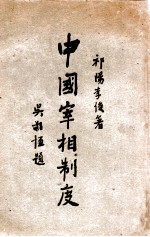 祁陽李俊著
中國宰相制度
吳敬恆題